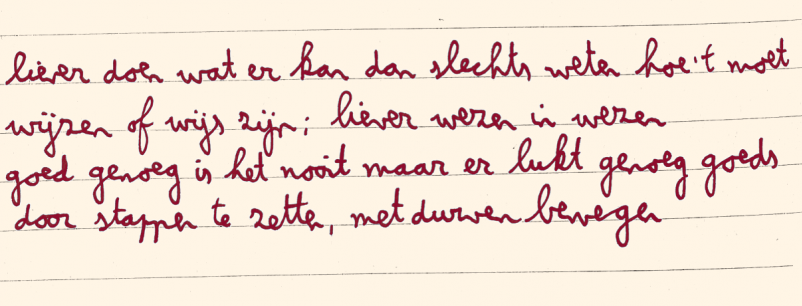 liever doen wat er kan dan slechts weten hoe't moet
wijzen of wijs zijn; liever wezen in wezen
goed genoeg is het nooit maar er lukt genoeg goeds
door stappen te zetten, met durven bewegen